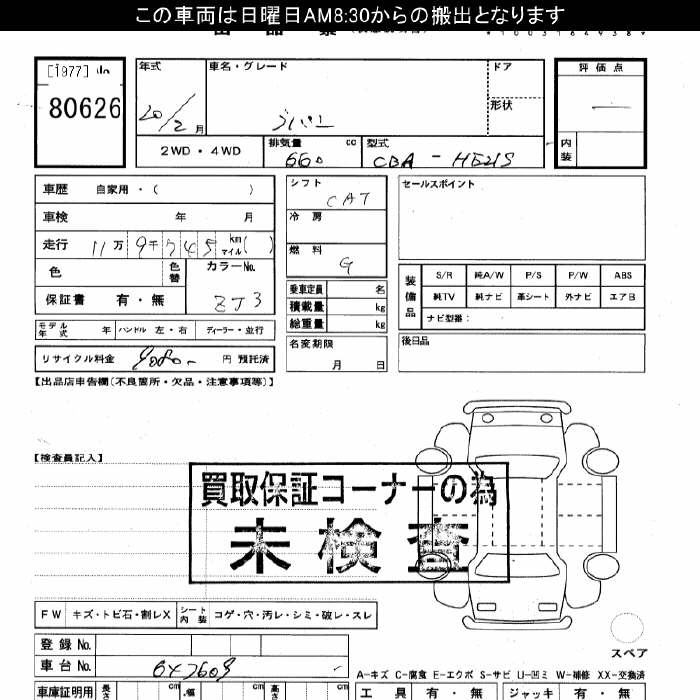 この車両は日曜日AM8:30からの搬出となります
[1977]
80626
年式
車名・グレード
ドア
形状
評価点
20/2月
ラパン
内装
2WD・4WD
排気量
660
cc
型式
CBA - HE21S
車歴 自家用・( )
シフト
CAT
セールスポイント
車検 年 月
冷房
走行 11万9千745 km マイル( )
燃料
G
色
色替
カラーNo.
ZJ3
保証書 有・無
乗車定員 名
積載量 kg
総重量 kg
装備品
S/R 純A/W P/S P/W ABS
純TV 純ナビ 革シート 外ナビ エアB
ナビ型番:
モデル年式 年 ハンドル 左・右 ディーラー・並行
名変期限
月 日
後日品
リサイクル料金 9080- 円 預託済
【出品店申告欄(不良箇所・欠品・注意事項等)】
【検査員記入】
買取保証コーナーの為
未検査
FW キズ・トビ石・割レX シート内装 コゲ・穴・汚レ・シミ・破レ・スレ
登録No.
スペア
車台No.
A-キズ C-腐食 E-エクボ S-サビ U-凹ミ W-補修 XX-交換済
車庫証明用 長さ cm 幅 cm 高さ cm
工具 有・無 ジャッキ 有・無